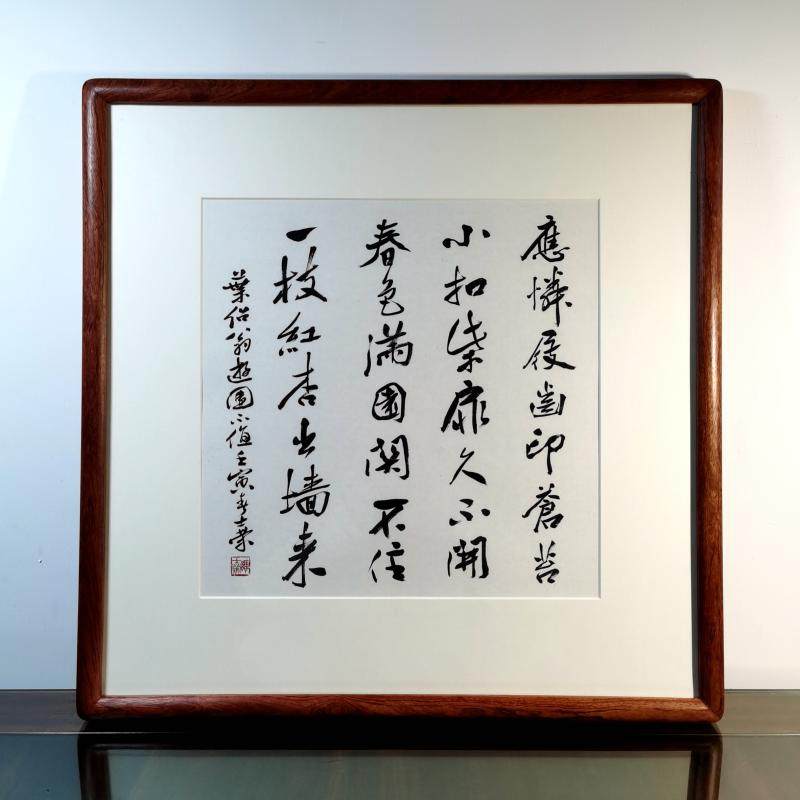 應憐屐齒印蒼苔
小扣柴扉久不開
春色滿園関不住
一枝紅杏出墙来
葉紹翁遊園不值壬寅春士